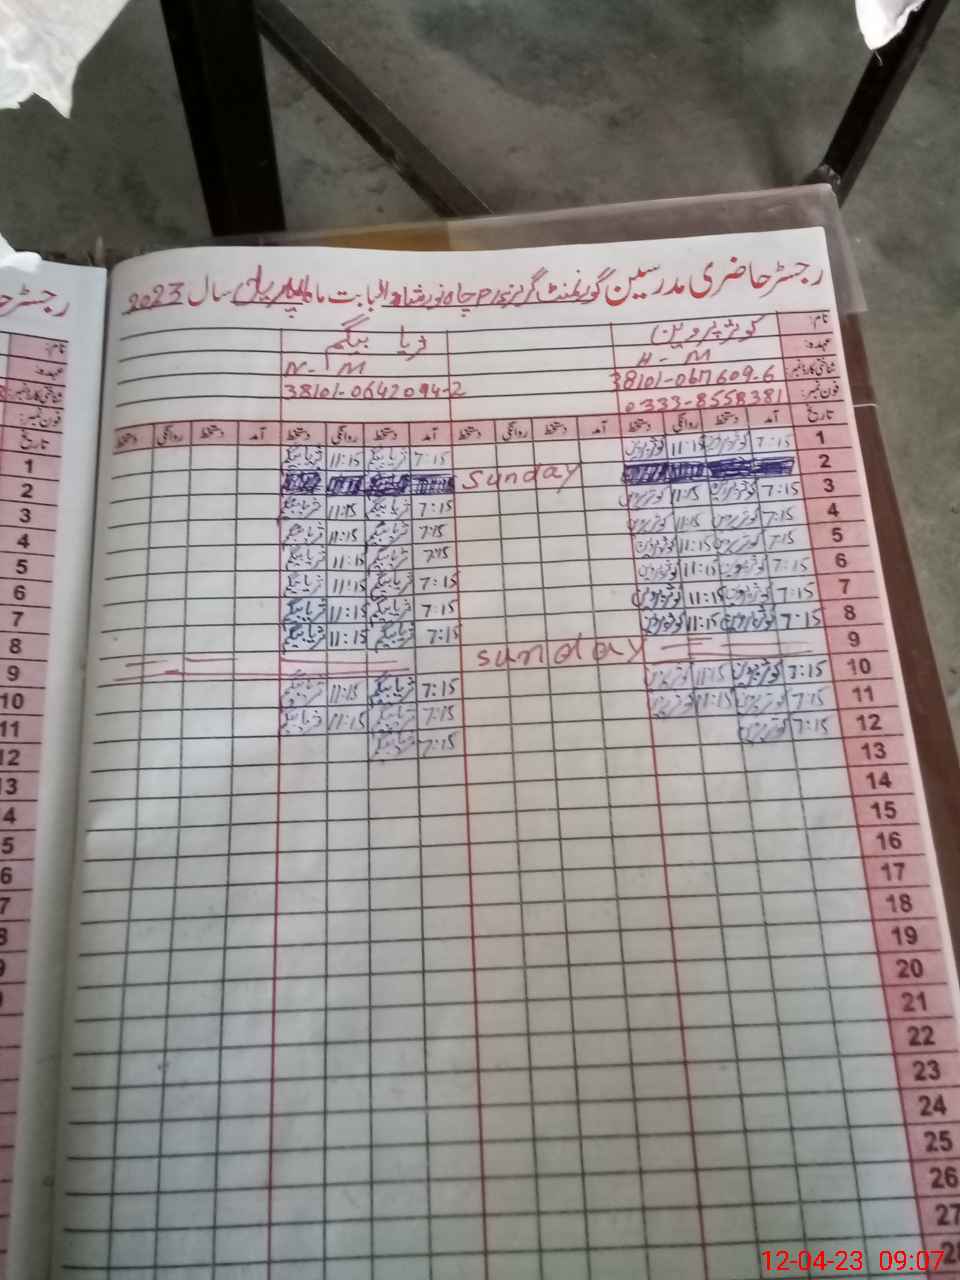 رجسٹر حاضری مدرسین گورنمنٹ گرلز چاہ نور شاہ بابت ماہ اپریل سال 2023
نام: کوثر پروین ثریا بیگم
عہدہ: H-M N-M
شناختی کارڈ نمبر: 38101-0642094-2
فون نمبر: 0333-8558381
تاریخ آمد دستخط روانگی دستخط آمد دستخط روانگی دستخط آمد دستخط روانگی دستخط آمد دستخط روانگی دستخط
1 7:15 11:15 7:15 ثریا بیگم 11:15 ثریا بیگم
2 sunday
3 7:15 11:15 7:15 ثریا بیگم 11:15 ثریا بیگم
4 7:15 11:15 7:15 ثریا بیگم 11:15 ثریا بیگم
5 7:15 11:15 7:15 ثریا بیگم 11:15 ثریا بیگم
6 7:15 11:15 7:15 ثریا بیگم 11:15 ثریا بیگم
7 7:15 11:15 7:15 ثریا بیگم 11:15 ثریا بیگم
8 7:15 11:15 7:15 ثریا بیگم 11:15 ثریا بیگم
9 sunday
10 7:15 11:15 7:15 ثریا بیگم 11:15 ثریا بیگم
11 7:15 11:15 7:15 ثریا بیگم 11:15 ثریا بیگم
12 7:15 7:15 ثریا بیگم
13
14
15
16
17
18
19
20
21
22
23
24
25
26
27
28
رجسٹر
نام:
عہدہ:
شناختی کارڈ نمبر:
فون نمبر:
تاریخ
1
2
3
4
5
6
7
8
9
10
11
12
13
12-04-23 09:07